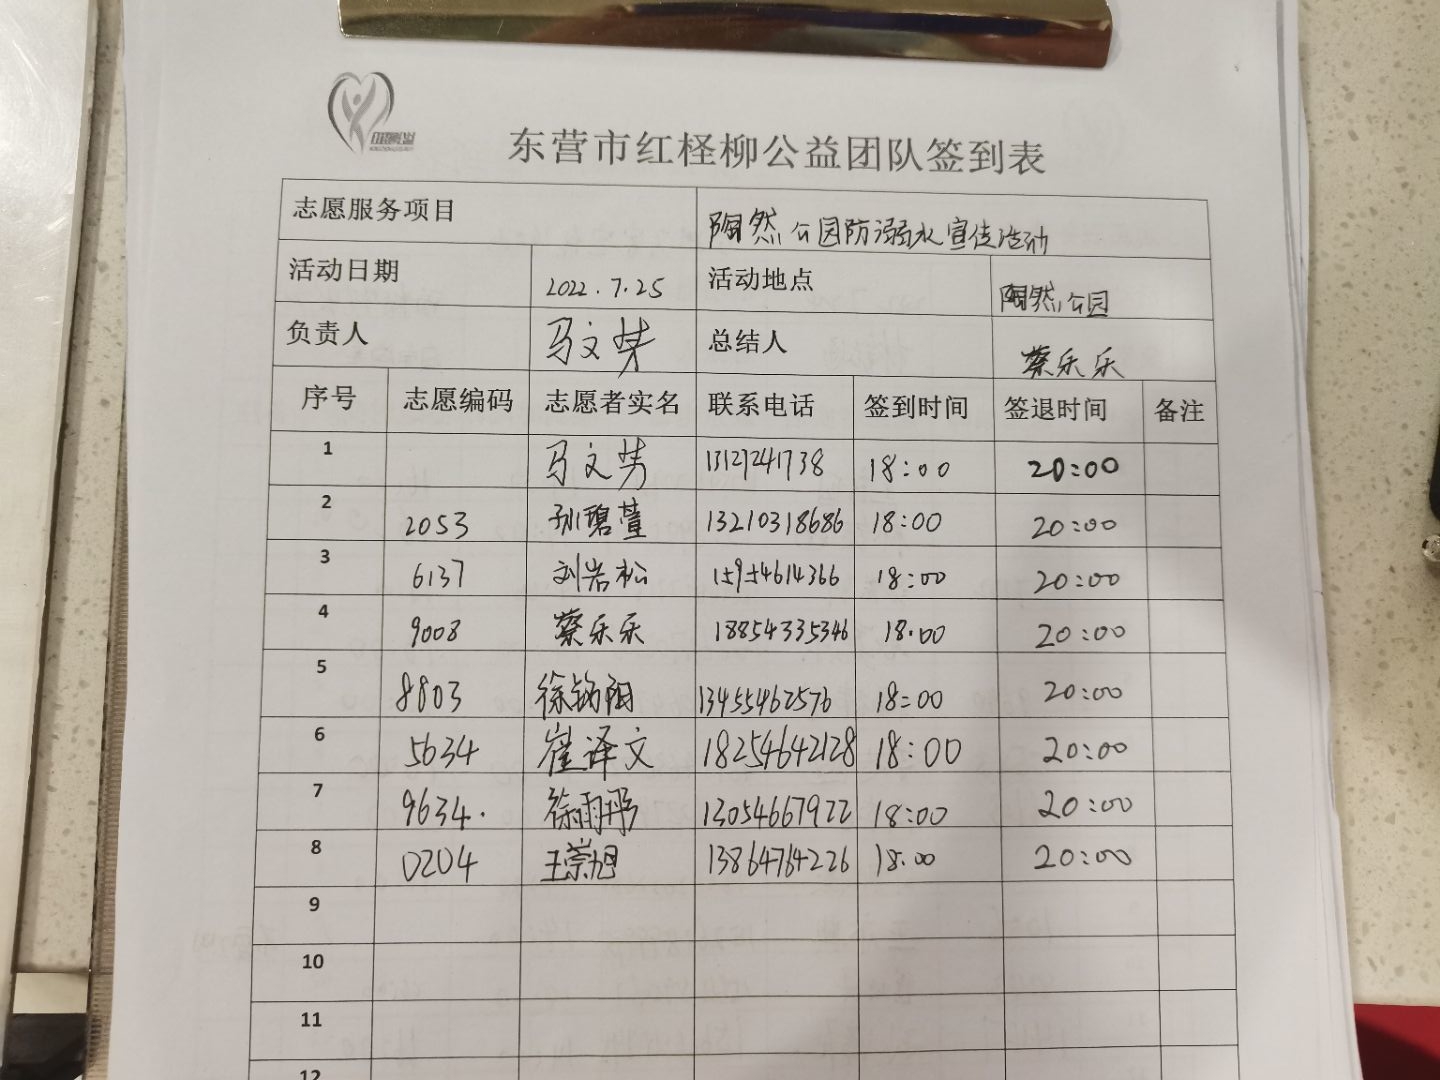 东营市红柽柳公益团队签到表
志愿服务项目 陶然公园防溺水宣传活动
活动日期 2022.7.25 活动地点 陶然公园
负责人 马文芳 总结人 蔡乐乐
序号 志愿编码 志愿者实名 联系电话 签到时间 签退时间 备注
1 马文芳 13127241738 18:00 20:00
2 2053 孙碧萱 13210318686 18:00 20:00
3 6137 刘岩松 15954614366 18:00 20:00
4 9008 蔡乐乐 18854335346 18:00 20:00
5 8803 徐铭阳 13455462576 18:00 20:00
6 5634 崔译文 18254642128 18:00 20:00
7 9634. 徐雨彤 13054667922 18:00 20:00
8 0204 王崇旭 13864764226 18:00 20:00
9
10
11
12